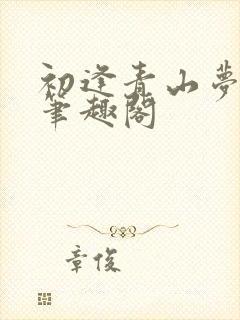 初逢青山夢
筆趣閣
章俊